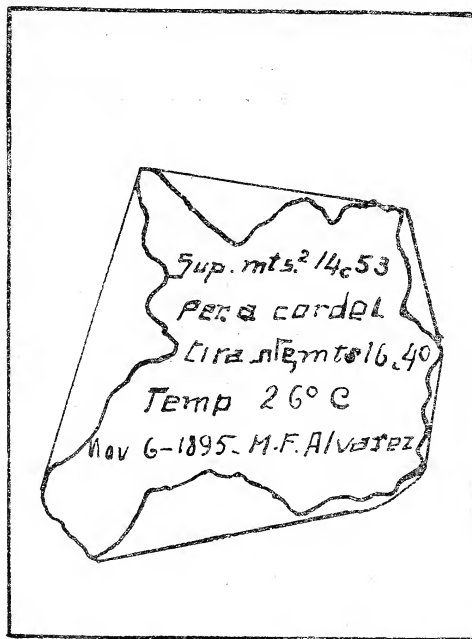 Sup. mts.² 14c53
Per. a cordel
tirante, mts 16.40
Temp 26° C
Nov 6-1895- M.F. Alvarez